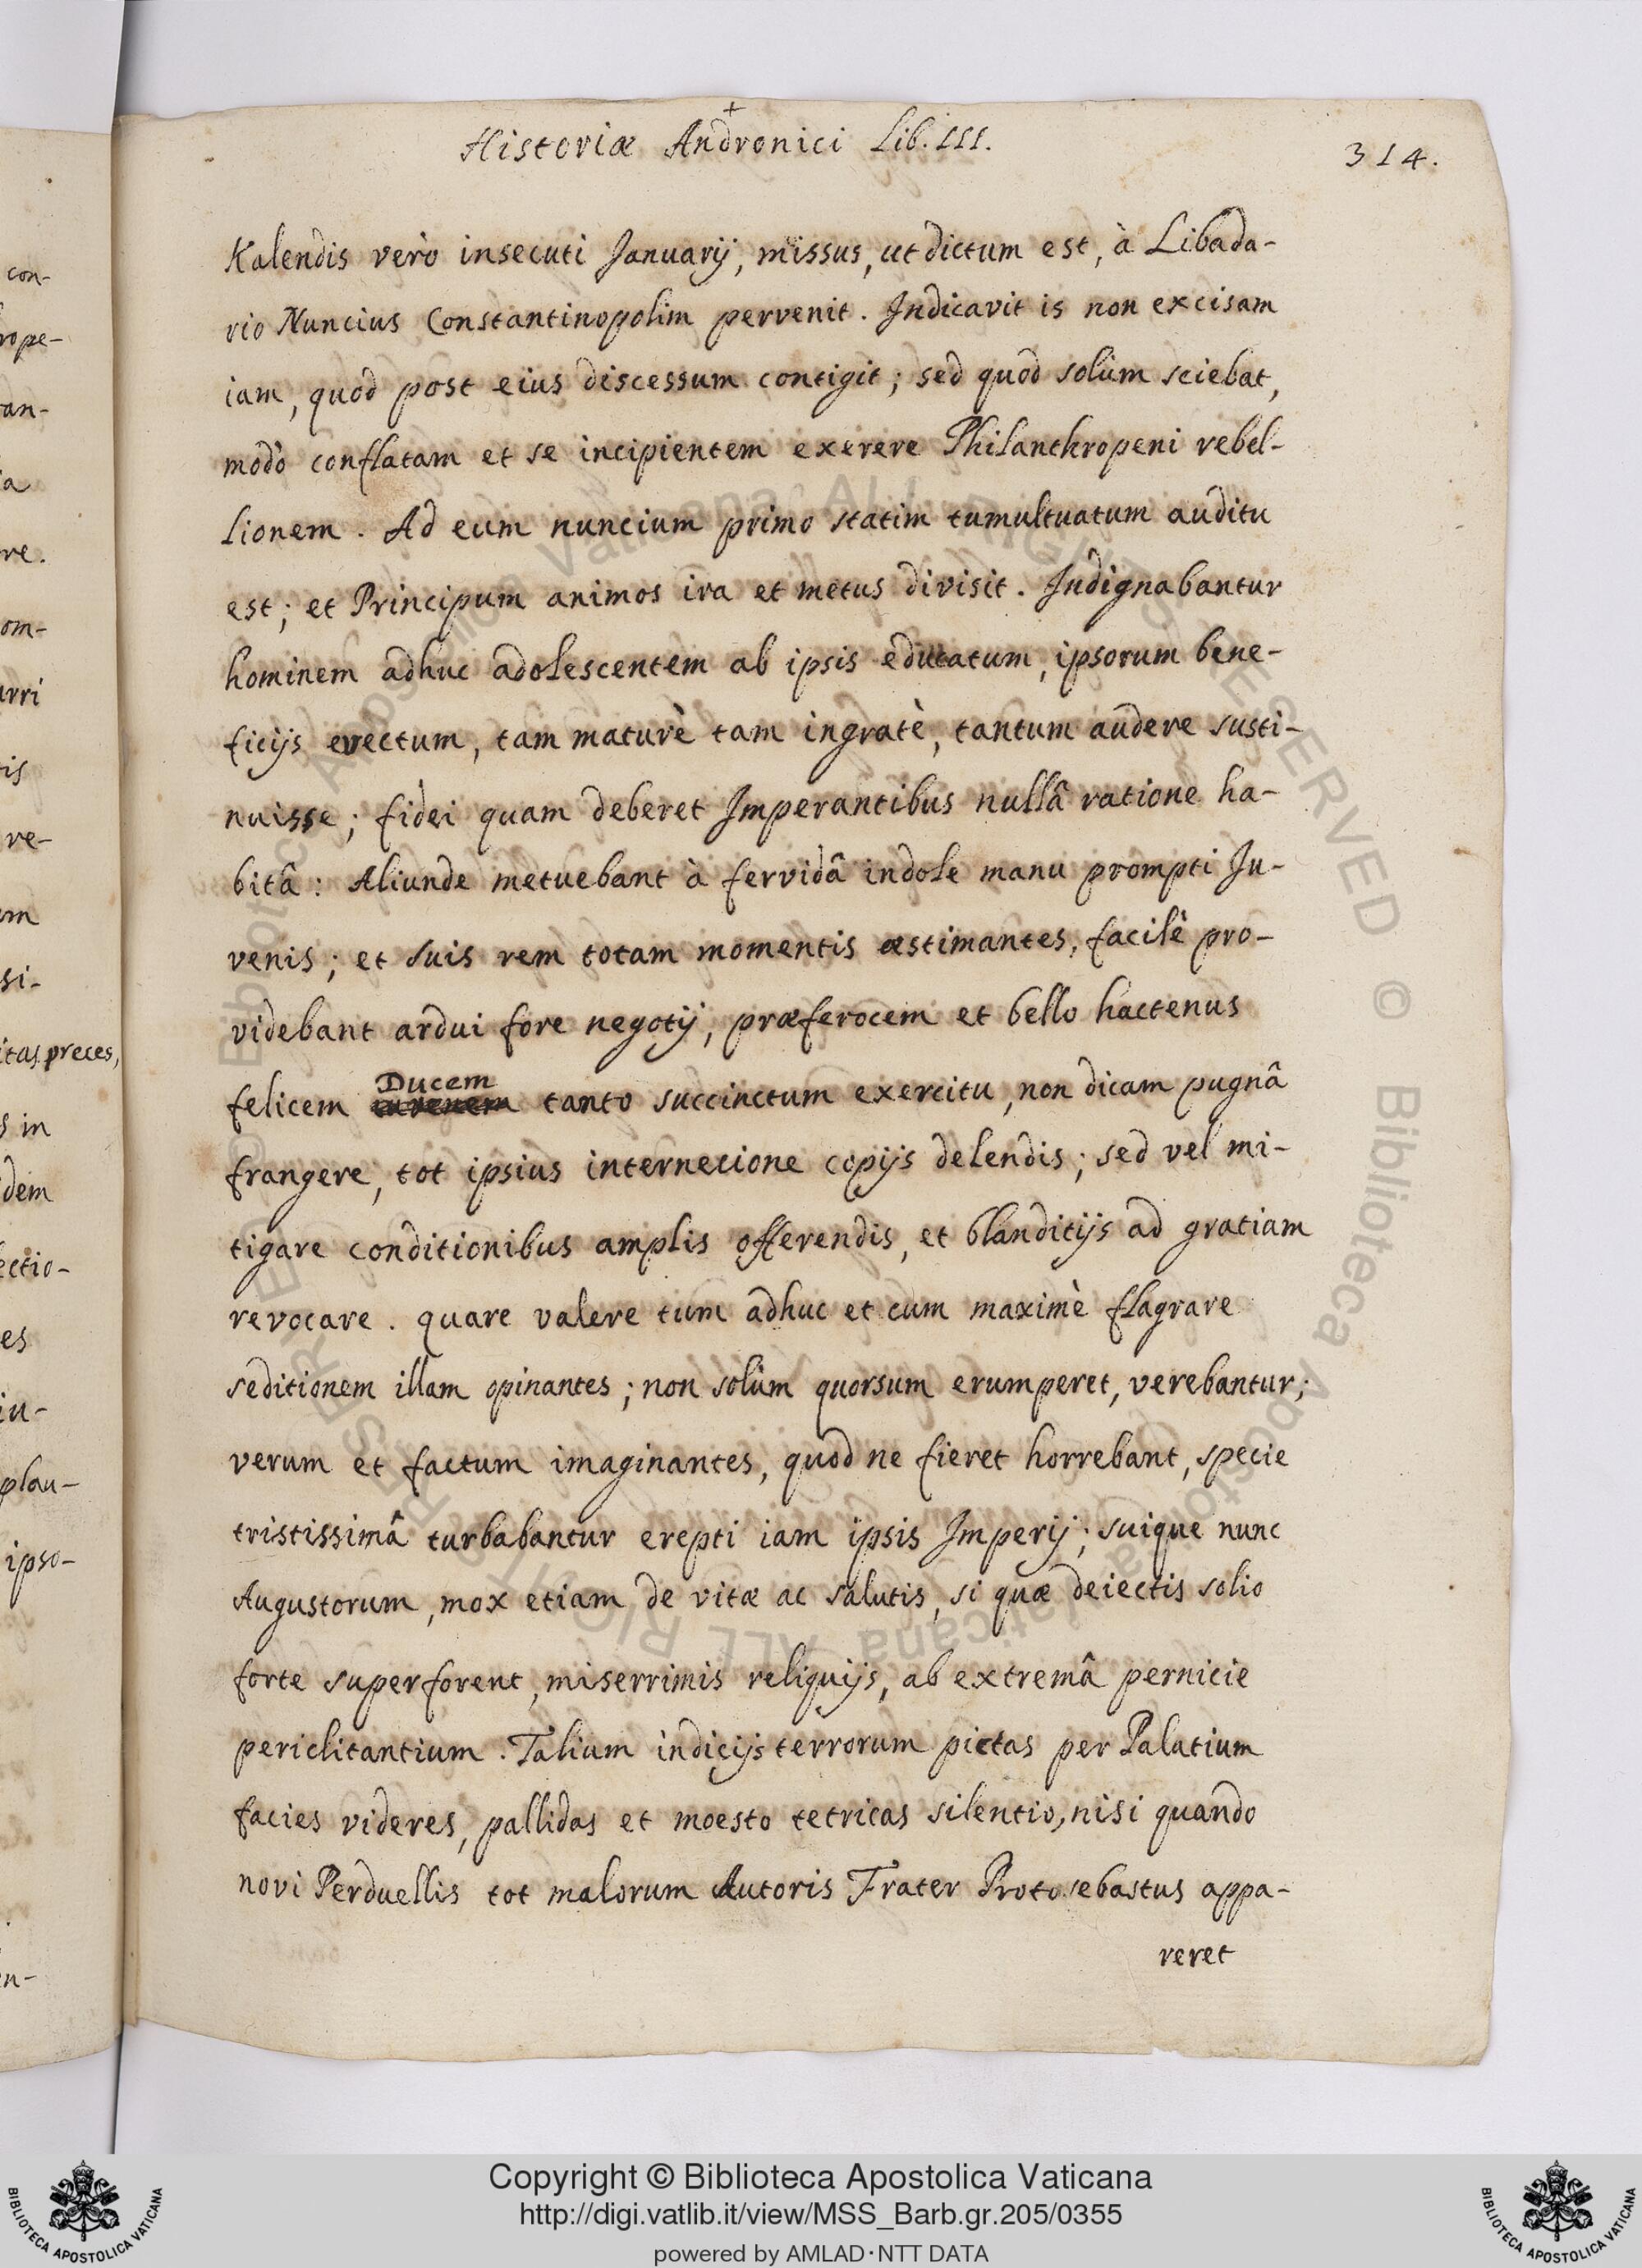 +
Historiæ Andronici Lib. III.
314.
Kalendis verò insecuti Januarij, missus, ut dictum est, à Libada-
rio Nuncius Constantinopolim pervenit. Indicavit is non excisam
iam, quod post eius discessum contigit; sed quod solùm sciebat,
modò conflatam et se incipientem exerere Philanthropeni rebel-
lionem. Ad eum nuncium primo statim tumultuatum auditu
est; et Principum animos ira et metus divisit. Indignabantur
hominem adhuc adolescentem ab ipsis educatum, ipsorum bene-
ficijs evectum, tam maturè tam ingratè, tantum audere susti-
nuisse; fidei quam deberet Imperantibus nullâ ratione ha-
bitâ: Aliunde metuebant à fervidâ indole manu prompti Ju-
venis; et suis rem totam momentis æstimantes, facilè pro-
videbant ardui fore negotij, præferocem et bello hactenus
Ducem
felicem iuvenem tanto succinctum exercitu, non dicam pugnâ
frangere, tot ipsius internecione copijs delendis; sed vel mi-
tigare conditionibus amplis offerendis, et blanditijs ad gratiam
revocare. quare valere tum adhuc et cum maximè flagrare
seditionem illam opinantes; non solùm quorsum erumperet, verebantur;
verum et factum imaginantes, quod ne fieret horrebant, specie
tristissimâ turbabantur erepti iam ipsis Imperij; suique nunc
Augustorum, mox etiam de vitæ ac salutis, si quæ deiectis solio
forte superforent, miserrimis reliquijs, ab extremâ pernicie
periclitantium. Talium indicijs terrorum pictas per Palatium
facies videres, pallidas et moesto tetricas silentio, nisi quando
novi Perduellis tot malorum Autoris Frater Protosebastus appa-
reret
con-
rope-
an-
a
re.
om-
urri
tis
re-
um
si-
itas preces,
s in
dem
ectio-
es
iu-
plau-
ipso-
en-
© Biblioteca Apostolica Vaticana ALL RIGHTS RESERVED © Biblioteca Apostolica Vaticana ALL RIGHTS RESERVED
Copyright © Biblioteca Apostolica Vaticana
http://digi.vatlib.it/view/MSS_Barb.gr.205/0355
powered by AMLAD·NTT DATA
BIBLIOTECA APOSTOLICA VATICANA
BIBLIOTECA APOSTOLICA VATICANA